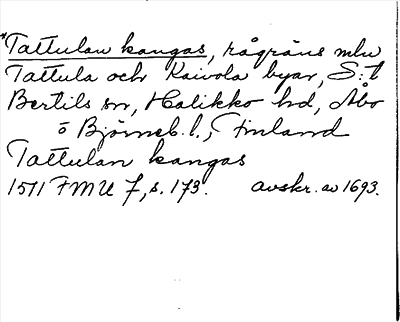 "Tattulan kangas, rågräns mlu
Tattula och Kaivola byar, S:t
Bertils sn, Halikko hd, Åbo
o Björneb. l., Finland
Tattulan kangas
1511 FMU 7, s. 173. avskr. av 1693.